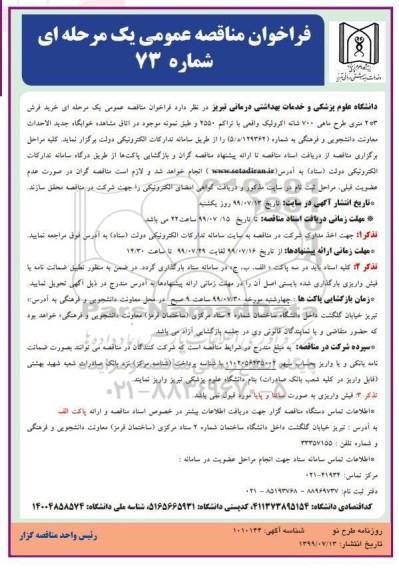 فراخوان مناقصه عمومی یک مرحله ای
شماره ۷۳
دانشگاه علوم پزشکی و خدمات بهداشتی درمانی تبریز در نظر دارد فراخوان مناقصه عمومی یک مرحله ای خرید فرش
۲*۳ متری طرح ماهی ۷۰۰ شانه اکرولیک واقعی با تراکم ۲۵۵۰ و طبق نمونه موجود در اتاق مشاهده خوابگاه جدید الاحداث
معاونت دانشجویی و فرهنگی به شماره (۵/د/۱۲۹۳۶۲) را از طریق سامانه تدارکات الکترونیکی دولت برگزار نماید. کلیه مراحل
برگزاری مناقصه از دریافت اسناد مناقصه تا ارائه پیشنهاد مناقصه گران و بازگشایی پاکت‌ها از طریق درگاه سامانه تدارکات
الکترونیکی دولت (ستاد) به آدرس (www.setadiran.ir) انجام خواهد شد و لازم است مناقصه گران در صورت عدم
عضویت قبلی، مراحل ثبت نام در سایت مذکور و دریافت گواهی امضای الکترونیکی را جهت شرکت در مناقصه محقق سازند.
*تاریخ انتشار آگهی در سایت: تاریخ ۹۹/۰۷/۱۳ روز یکشنبه
* مهلت زمانی دریافت اسناد مناقصه: تا تاریخ ۹۹/۰۷/۱۵ ساعت ۲۲ می باشد
تذکر۱: جهت اخذ مدارک شرکت در مناقصه به سایت سامانه تدارکات الکترونیکی دولت (ستاد) به آدرس فوق مراجعه نمایید.
*مهلت زمانی ارائه پیشنهادها: از تاریخ ۹۹/۰۷/۱۶ لغایت ۹۹/۰۷/۲۹ تا ساعت ۱۴/۳۰
تذکر ۲: کلیه اسناد باید در سه پاکت «الف، ب، ج» در سامانه ستاد بارگذاری گردد. در ضمن به منظور تطبیق ضمانت نامه یا
فیش واریزی بارگذاری شده بایستی اصل آن را در مهلت زمانی ارائه پیشنهادها به آدرس مندرج در ذیل آگهی تحویل نمایید.
*زمان بازگشایی پاکت ها : چهارشنبه مورخه ۹۹/۰۷/۳۰ ساعت ۹ صبح در محل معاونت دانشجویی و فرهنگی به آدرس:
تبریز خیابان گلگشت داخل دانشگاه ساختمان شماره ۲ ستاد مرکزی (ساختمان قرمز) معاونت دانشجویی و فرهنگی) خواهد بود
که حضور متقاضی و یا نمایندگان قانونی وی در جلسه بازگشایی آزاد می باشد.
*سپرده شرکت در مناقصه: به مبلغ مندرج در شرایط مناقصه است که شرکت کنندگان در مناقصه می توانند بصورت ضمانت
نامه بانکی و یا واریز بحساب سپهر با شناسه پرداخت (شناسه مرکز) نزد بانک صادرات شعبه شهید بهشتی
(قابل واریز در کلیه شعب بانک صادرات) بنام دانشگاه علوم پزشکی تبریز واریز نمایند.
تذکر ۳: فیش واریزی به صورت ساتنا و پایا مورد قبول نمی باشد.
*اطلاعات تماس دستگاه مناقصه گزار جهت دریافت اطلاعات بیشتر در خصوص اسناد مناقصه و ارائه پاکت الف
به آدرس : تبریز خیابان گلگشت داخل دانشگاه ساختمان شماره ۲ ستاد مرکزی (ساختمان قرمز) معاونت دانشجویی و فرهنگی
و شماره تلفن : ۳۳۳۵۷۱۵۵
*اطلاعات تماس سامانه ستاد جهت انجام مراحل عضویت در سامانه :
مرکز تماس: ۴۱۹۳۴-۰۲۱
دفتر ثبت نام: ۸۸۹۶۹۷۳۷ - ۸۵۱۹۳۷۶۸ - ۰۲۱
کد اقتصادی دانشگاه: ۴۱۱۳۷۳۸۹۵۱۵۴ ، کدپستی دانشگاه: ۵۱۶۵۶۶۵۹۳۱، شناسه ملی دانشگاه: ۱۴۰۰۴۸۵۸۵۷۴
رئیس واحد مناقصه گزار
روزنامه طرح نو شناسه آگهی: ۱۰۱۰۱۴۴
تاریخ انتشار: ۱۳۹۹/۰۷/۱۳
۰۲۱-۸۸۳۴۹۶۷۰-۵